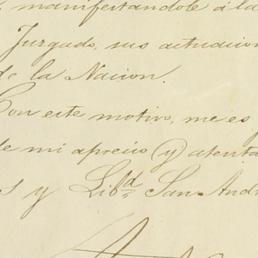 manifestandole á la
Juzgado, sus actuacion
de la Nacion.
Con este motivo, me es
de mi aprecio (y) atenta
s y Lib.d San Andr